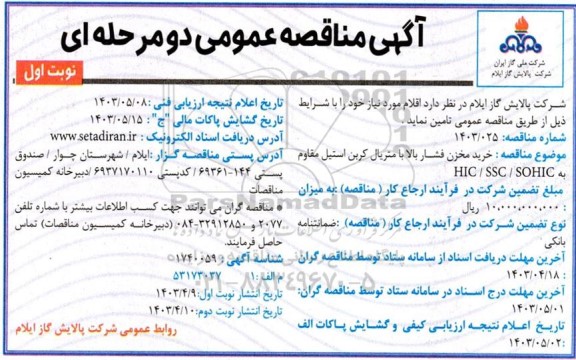 شرکت ملی گاز ایران
شرکت پالایش گاز ایلام
آگهی مناقصه عمومی دو مرحله ای
نوبت اول
شرکت پالایش گاز ایلام در نظر دارد اقلام مورد نیاز خود را با شرایط
ذیل از طریق مناقصه عمومی تامین نماید.
شماره مناقصه: ۱۴۰۳/۰۲۵
موضوع مناقصه : خرید مخزن فشار بالا با متریال کربن استیل مقاوم
به HIC / SSC / SOHIC
مبلغ تضمین شرکت در فرآیند ارجاع کار ( مناقصه) به میزان
: ۱۰,۰۰۰,۰۰۰,۰۰۰ ریال
نوع تضمین شرکت در فرآیند ارجاع کار ( مناقصه) :ضمانتنامه
بانکی
آخرین مهلت دریافت اسناد از سامانه ستاد توسط مناقصه گران:
۱۴۰۳/۰۴/۱۸ :
آخرین مهلت درج اسناد در سامانه ستاد توسط مناقصه گران:
۱۴۰۳/۰۵/۰۱
تاریخ اعلام نتیجه ارزیابی کیفی و گشایش پاکات الف
:۱۴۰۳/۰۵/۰۲
تاریخ اعلام نتیجه ارزیابی فنی :۱۴۰۳/۰۵/۰۸
تاریخ گشایش پاکات مالی "ج" : ۱۴۰۳/۰۵/۱۵
آدرس دریافت اسناد الکترونیک : www.setadiran.ir
آدرس پستی مناقصه گزار :ایلام / شهرستان چوار / صندوق
پستی ۱۴۴-۶۹۳۶۱ / کدپستی ۶۹۳۷۱۷۰۱۱۰ /دبیرخانه کمیسیون
مناقصات
● مناقصه گران می توانند جهت کسب اطلاعات بیشتر با شماره تلفن
۲۰۷۷ و ۳۲۹۱۲۸۵۰-۰۸۴ (دبیرخانه کمیسیون مناقصات) تماس
حاصل فرمایند.
شناسه آگهی : ۱۷۴۰۰۵۹
م الف :۱ ۵۳۱۷۳۰۲۷
تاریخ انتشار نوبت اول: ۱۴۰۳/۴/۹
تاریخ انتشار نوبت دوم: ۱۴۰۳/۴/۱۰
روابط عمومی شرکت پالایش گاز ایلام
ParsNamadData
۰۲۱-۸۸۳۴۹۶۷۰-۵